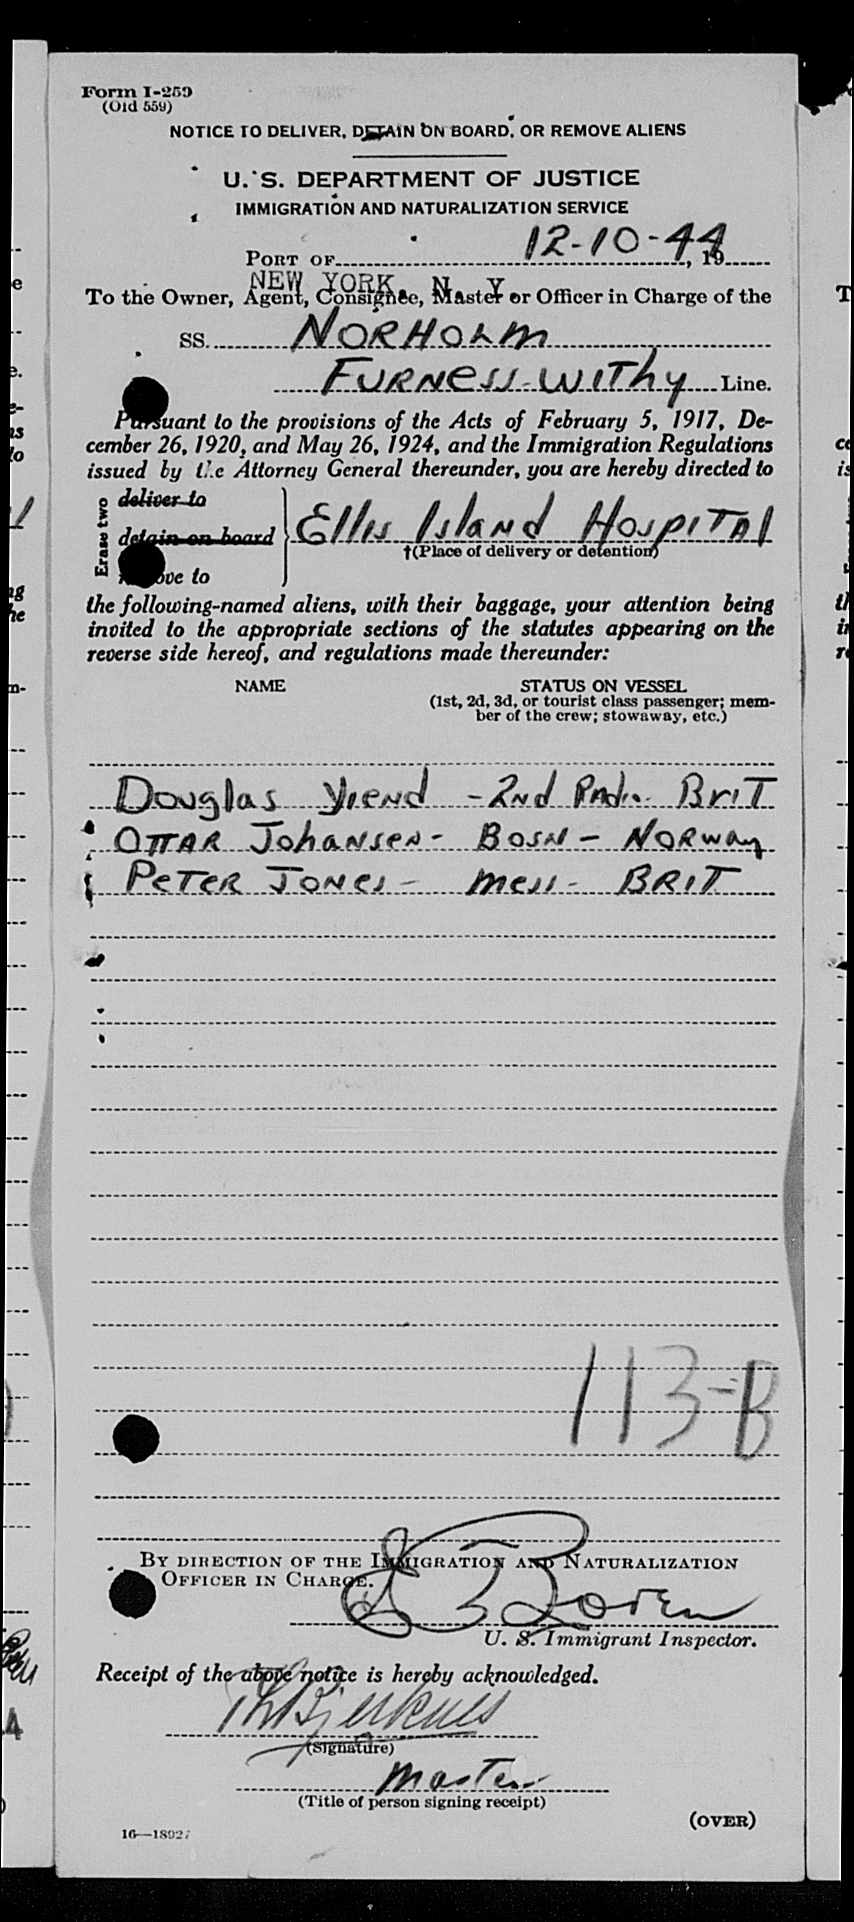 Form I-259
(Old 559)
NOTICE TO DELIVER, DETAIN ON BOARD, OR REMOVE ALIENS
U. S. DEPARTMENT OF JUSTICE
IMMIGRATION AND NATURALIZATION SERVICE
PORT OF NEW YORK, N. Y. 12-10-44, 19
To the Owner, Agent, Consignee, Master or Officer in Charge of the
SS. NORHOLM
FURNESS-WITHY Line.
Pursuant to the provisions of the Acts of February 5, 1917, De-
cember 26, 1920, and May 26, 1924, and the Immigration Regulations
issued by the Attorney General thereunder, you are hereby directed to
Erase two
deliver to
detain on board
Ellis Island Hospital
†(Place of delivery or detention)
remove to
the following-named aliens, with their baggage, your attention being
invited to the appropriate sections of the statutes appearing on the
reverse side hereof, and regulations made thereunder:
NAME STATUS ON VESSEL
(1st, 2d, 3d, or tourist class passenger; mem-
ber of the crew; stowaway, etc.)
Douglas Yiend - 2nd Radio Brit
Ottar Johansen - Bosn - Norway
Peter Jones - Mess - Brit
113-B
BY DIRECTION OF THE IMMIGRATION AND NATURALIZATION
OFFICER IN CHARGE.
U. S. Immigrant Inspector.
Receipt of the above notice is hereby acknowledged.
Bjerknes
(Signature)
Master
(Title of person signing receipt)
(OVER)
16—18927